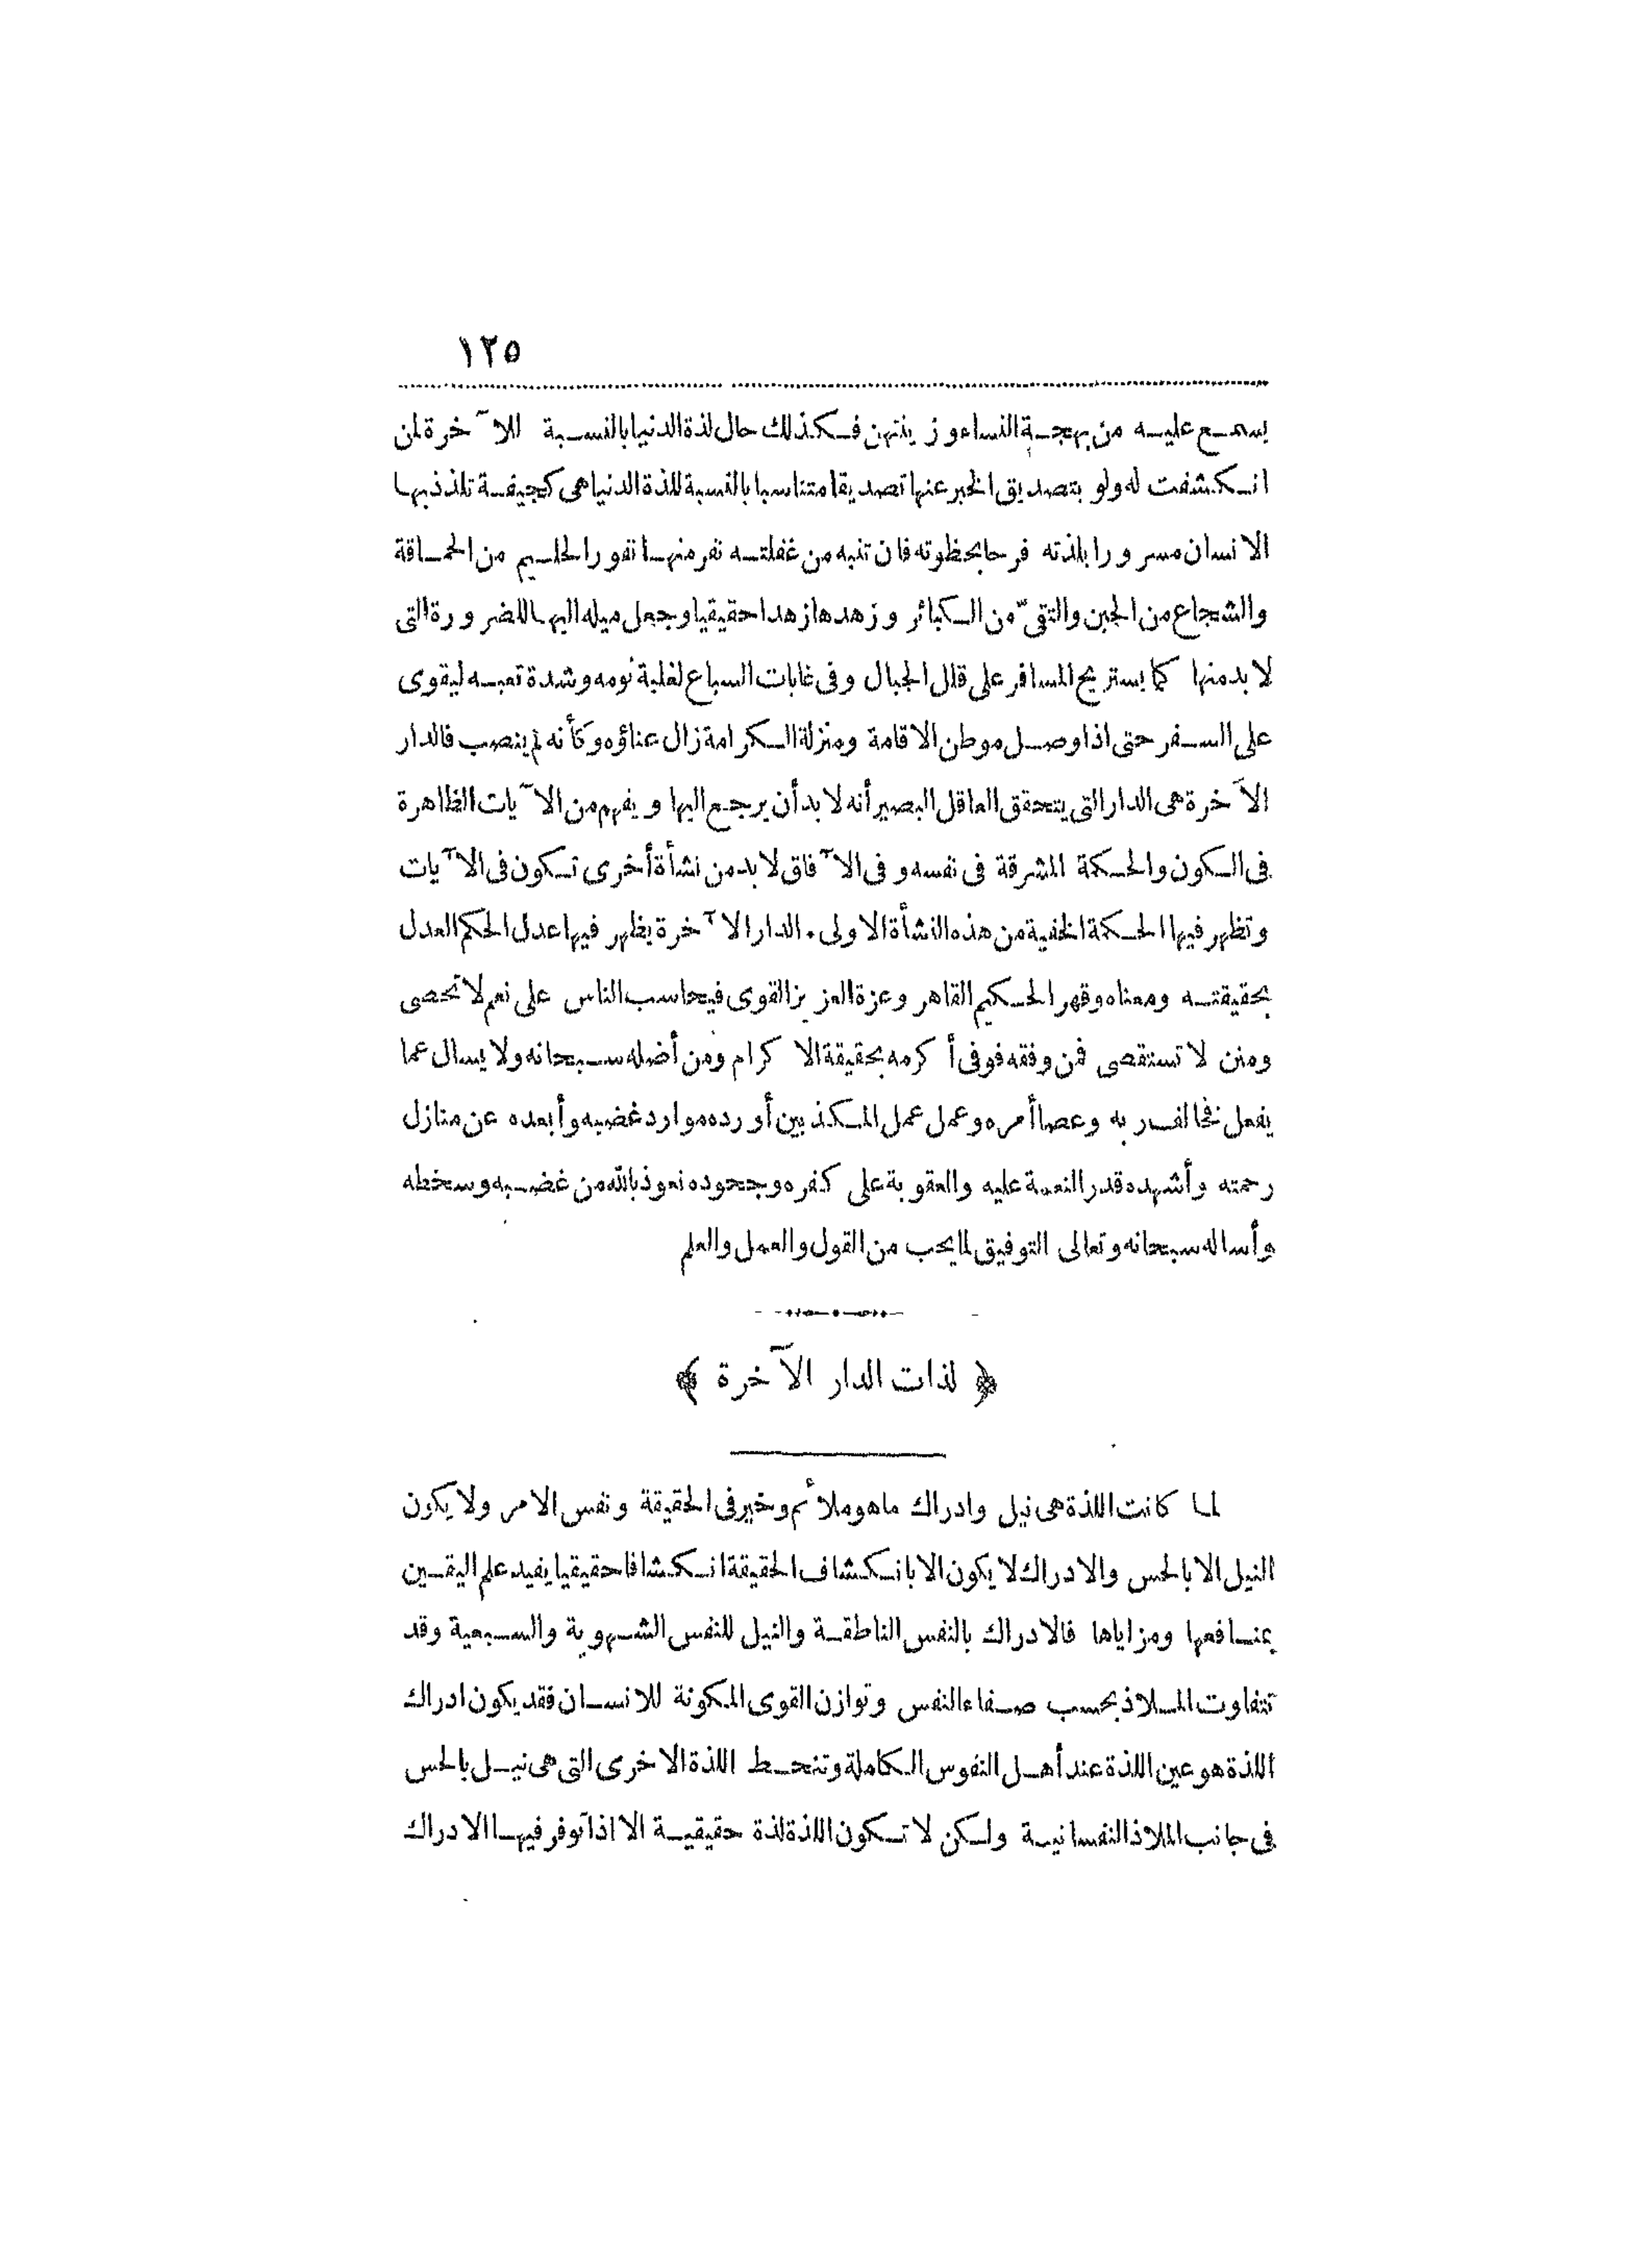 ١٢٥
يسمع عليه من بهجة النساء وزينتهن فكذلك حال لذة الدنيا بالنسبة للآخرة لمن
انكشفت له ولو بتصديق الخبر عنها تصديقا متناسبا بالنسبة للذة الدنيا هى كجيفة تلذذ بها
الانسان مسرورا بلذته فرحا بحظوته فان تنبه من غفلته نفر منها نفور الحليم من الحماقة
والشجاع من الجبن والتقىّ من الكبائر وزهدها زهدا حقيقيا وجعل ميله اليها للضرورة التى
لا بد منها كما يستريح المسافر على قلل الجبال وفى غابات السباع لغلبة نومه وشدة تعبه ليقوى
على السفر حتى اذا وصل موطن الاقامة ومنزلة الكرامة زال عناؤه وكأنه لم ينصب فالدار
الآخرة هى الدار التى يتحقق العاقل البصير أنه لا بد أن يرجع اليها ويفهم من الآيات الظاهرة
فى الكون والحكمة المشرقة فى نفسه وفى الآفاق لا بد من نشأة أخرى تكون فى الآيات
وتظهر فيها الحكمة الخفية من هذه النشأة الاولى. الدار الآخرة يظهر فيها عدل الحكم العدل
بحقيقته ومعناه وقهر الحكيم القاهر وعزة العزيز القوى فيحاسب الناس على نعم لا تحصى
ومنن لا تستقصى فمن وفقه فوفى أكرمه بحقيقة الاكرام ومن أضله سبحانه ولا يسال عما
يفعل نخالف ربه وعصا أمره وعمل عمل المكذبين أورده موارد غضبه وأبعده عن منازل
رحمته وأشهده قدر النعمة عليه والعقوبة على كفره وجحوده نعوذ بالله من غضبه وسخطه
وأساله سبحانه وتعالى التوفيق لما يحب من القول والعمل والعلم
﴿ لذات الدار الآخرة ﴾
لما كانت اللذة هى نيل وادراك ما هو ملائم وخير فى الحقيقة ونفس الامر ولا يكون
النيل الا بالحس والادراك لا يكون الا بانكشاف الحقيقة انكشافا حقيقيا يفيد علم اليقين
بمنافعها ومزاياها فالادراك بالنفس الناطقة والنيل للنفس الشهوية والسبعية وقد
تتفاوت الملاذ بحسب صفاء النفس وتوازن القوى المكونة للانسان فقد يكون ادراك
اللذة هو عين اللذة عند أهل النفوس الكاملة وتنحط اللذة الاخرى التى هى نيل بالحس
فى جانب الملاذ النفسانية ولكن لا تكون اللذة لذة حقيقية الا اذا توفر فيها الادراك